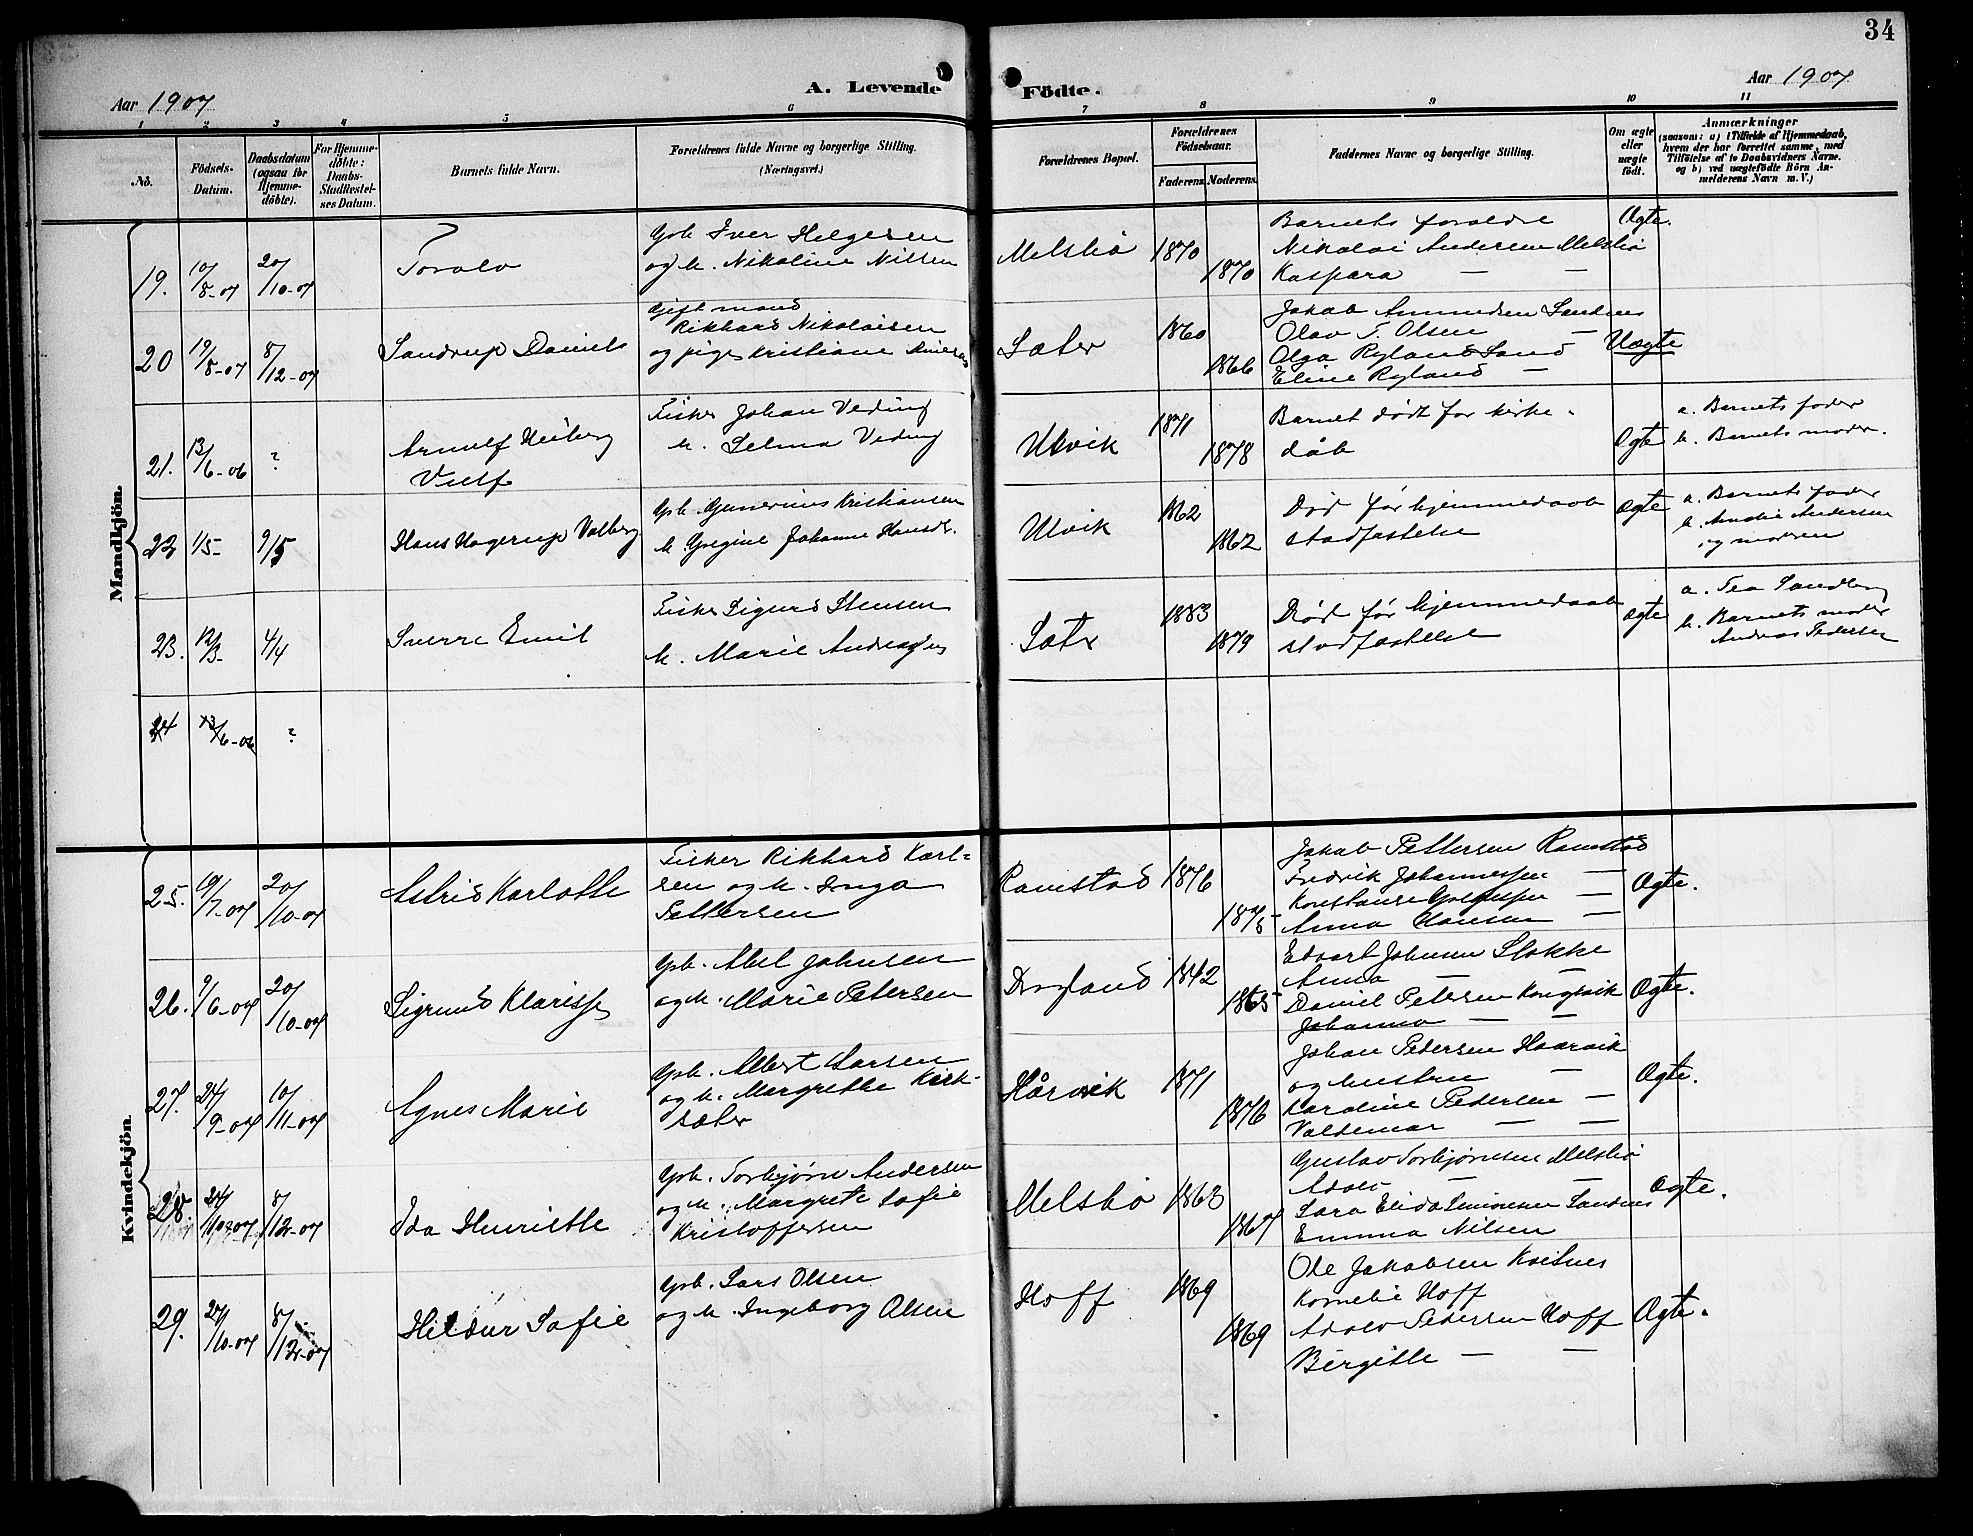 34
Aar 1907
A. Levende Födte.
Aar 1907
1 2 3 4 5 6 7 8 9 10 11
No.
Födsels-
Datum.
Daabsdatum
(ogsaa for
Hjemme-
döbte).
For Hjemme-
döbte:
Daabs-
Stadfæstel-
ses Datum.
Barnets fulde Navn.
Forældrenes fulde Navne og borgerlige Stilling.
(Næringsvei.)
Forældrenes Bopæl.
Forældrenes
Födselsaar.
Faderens. Moderens.
Faddernes Navne og borgerlige Stilling.
Om ægte
eller
uægte
født.
Anmærkninger
(saasom: a) i Tilfælde af Hjemmedaab,
hvem der har forrettet samme, med
Tilföielse af to Daabsvidners Navne.
og b) ved uægtefödte Börn An-
melderens Navn m. V.)
Mandkjön.
19. 10/8-07 20/10-07
Torolv
Gbr. Iver Helgesen
og h. Nikoline Nilsen
Melsbö 1870 1870
Barnets foreldre
Nikolai Andersen Melsbö
Kaspara — —
Ægte.
20 19/8-07 8/12-07
Sandrup Daniels
Gift mand
Rikhard Nikolaisen
og pige Kristiane
Sæter 1860 1866
Jakob Amundsen Sandnes
Olav T. Olsen —
Olga Ryland Sand
Eline Ryland —
Uægte
21. 13/6-06 ?
Arnulf Heiberg
Fisker Johan Veding
h. Selma Veding
Ulvik 1871 1878
Barnet dödt før kirke-
dåb
Ægte
a. Barnets fader
b. Barnets moder.
22 1/5- 9/5
Hans Hagerup Valberg
Gbr. Gunerius Kristiansen
h. Gregine Johanne Hansdt.
Ulvik 1862 1862
Död før hjemmedaab
stadfæstelse
Ægte
a. Barnets fader
b. Amalie Andersen
og modren
23. 12/3- 4/4
Sverre Emil
Fisker Sigurd Stensen
h. Marie
Sæter 1883 1879
Død før hjemmedaab
stadfæstelse
Ægte
a. Tea Sandberg
b. Barnets moder
Andreas Pedersen
24 13/6-06 ?
Kvindekjön.
25. 19/7-07 20/10-07
Astrid Karlotte
Fisker Rikhard Karl-
sen og h. Inga
Pettersen
Ramstad 1876 1875
Jakob Pettersen Ramstad
Fredrik Johannessen —
Konstanse —
Anna Hansen —
Ægte.
26. 9/6-07 20/10-07
Sigrund Klarisse
Gbr. Abel Johnsen
og h. Marie Petersen
Drogland 1842 1865
Edvart Johnsen Slokke
Anna — —
Daniel Petersen Kongsvik
Johanna — —
Ægte.
27. 24/9-07 10/11-07
Agnes Marie
Gbr. Albert Larsen
og h. Margrethe Kirk-
sæter
Hårvik 1871 1876
Johan Pedersen Haarvik
og hustru —
Karoline Pedersen —
Valdemar — —
Ægte.
28. 24/10-07 8/12-07
Ida Henriette
Gbr. Torbjørn Andersen
og h. Margrete Sofie
Kristoffersen
Melsbö 1863 1867
Gustav Torbjørnsen Melsbö
Adolv — —
Sara Elida Simonsen Sandnes
Emma Nilsen
Ægte.
29. 24/10-07 8/12-07
Hildur Sofie
Gbr. Lars Olsen
og h. Ingeborg Olsen
Hoff 1869 1869
Ole Jakobsen Kvitnes
Kornelie Hoff
Adolv Pedersen Hoff
Birgitte — —
Ægte.